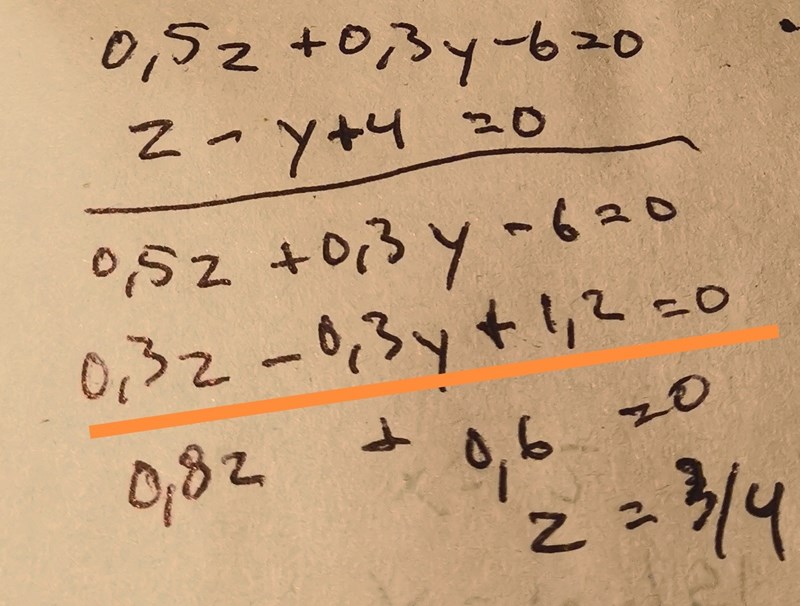 0,5z + 0,3y - 6 = 0
z - y + 4 = 0
0,5z + 0,3y - 6 = 0
0,3z - 0,3y + 1,2 = 0
0,8z + 0,6 = 0
z = 3/4